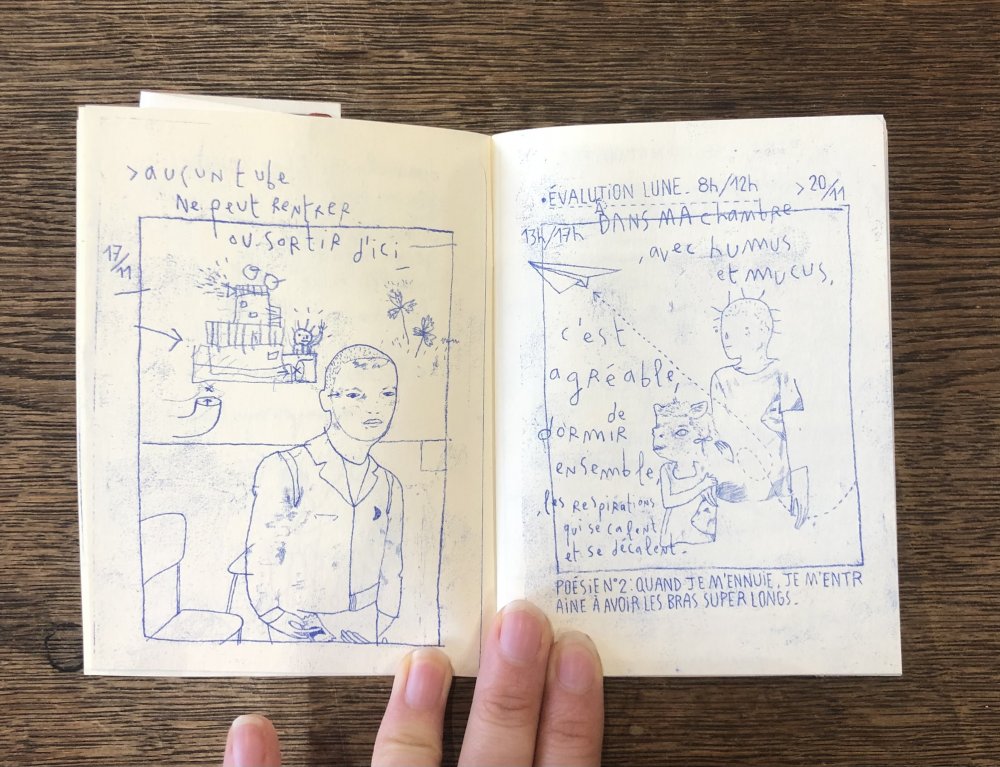 >aucun tube
Ne peut RENTRER
OU SORTIR d'ici
17/11
•ÉVALUTION LUNE. 8h/12h
>20/11
13h/17h
À DANS MA chambre
,avec humus
et mucus,
c'est
agréable,
de
dORMIR
ensemble,
,les RESPIRATIONS
qui se calent
et se décalent.
POÉSIE N°2: QUAND JE M'ENNUIE, JE M'ENTR
AINE À AVOIR LES BRAS SUPER LONGS.